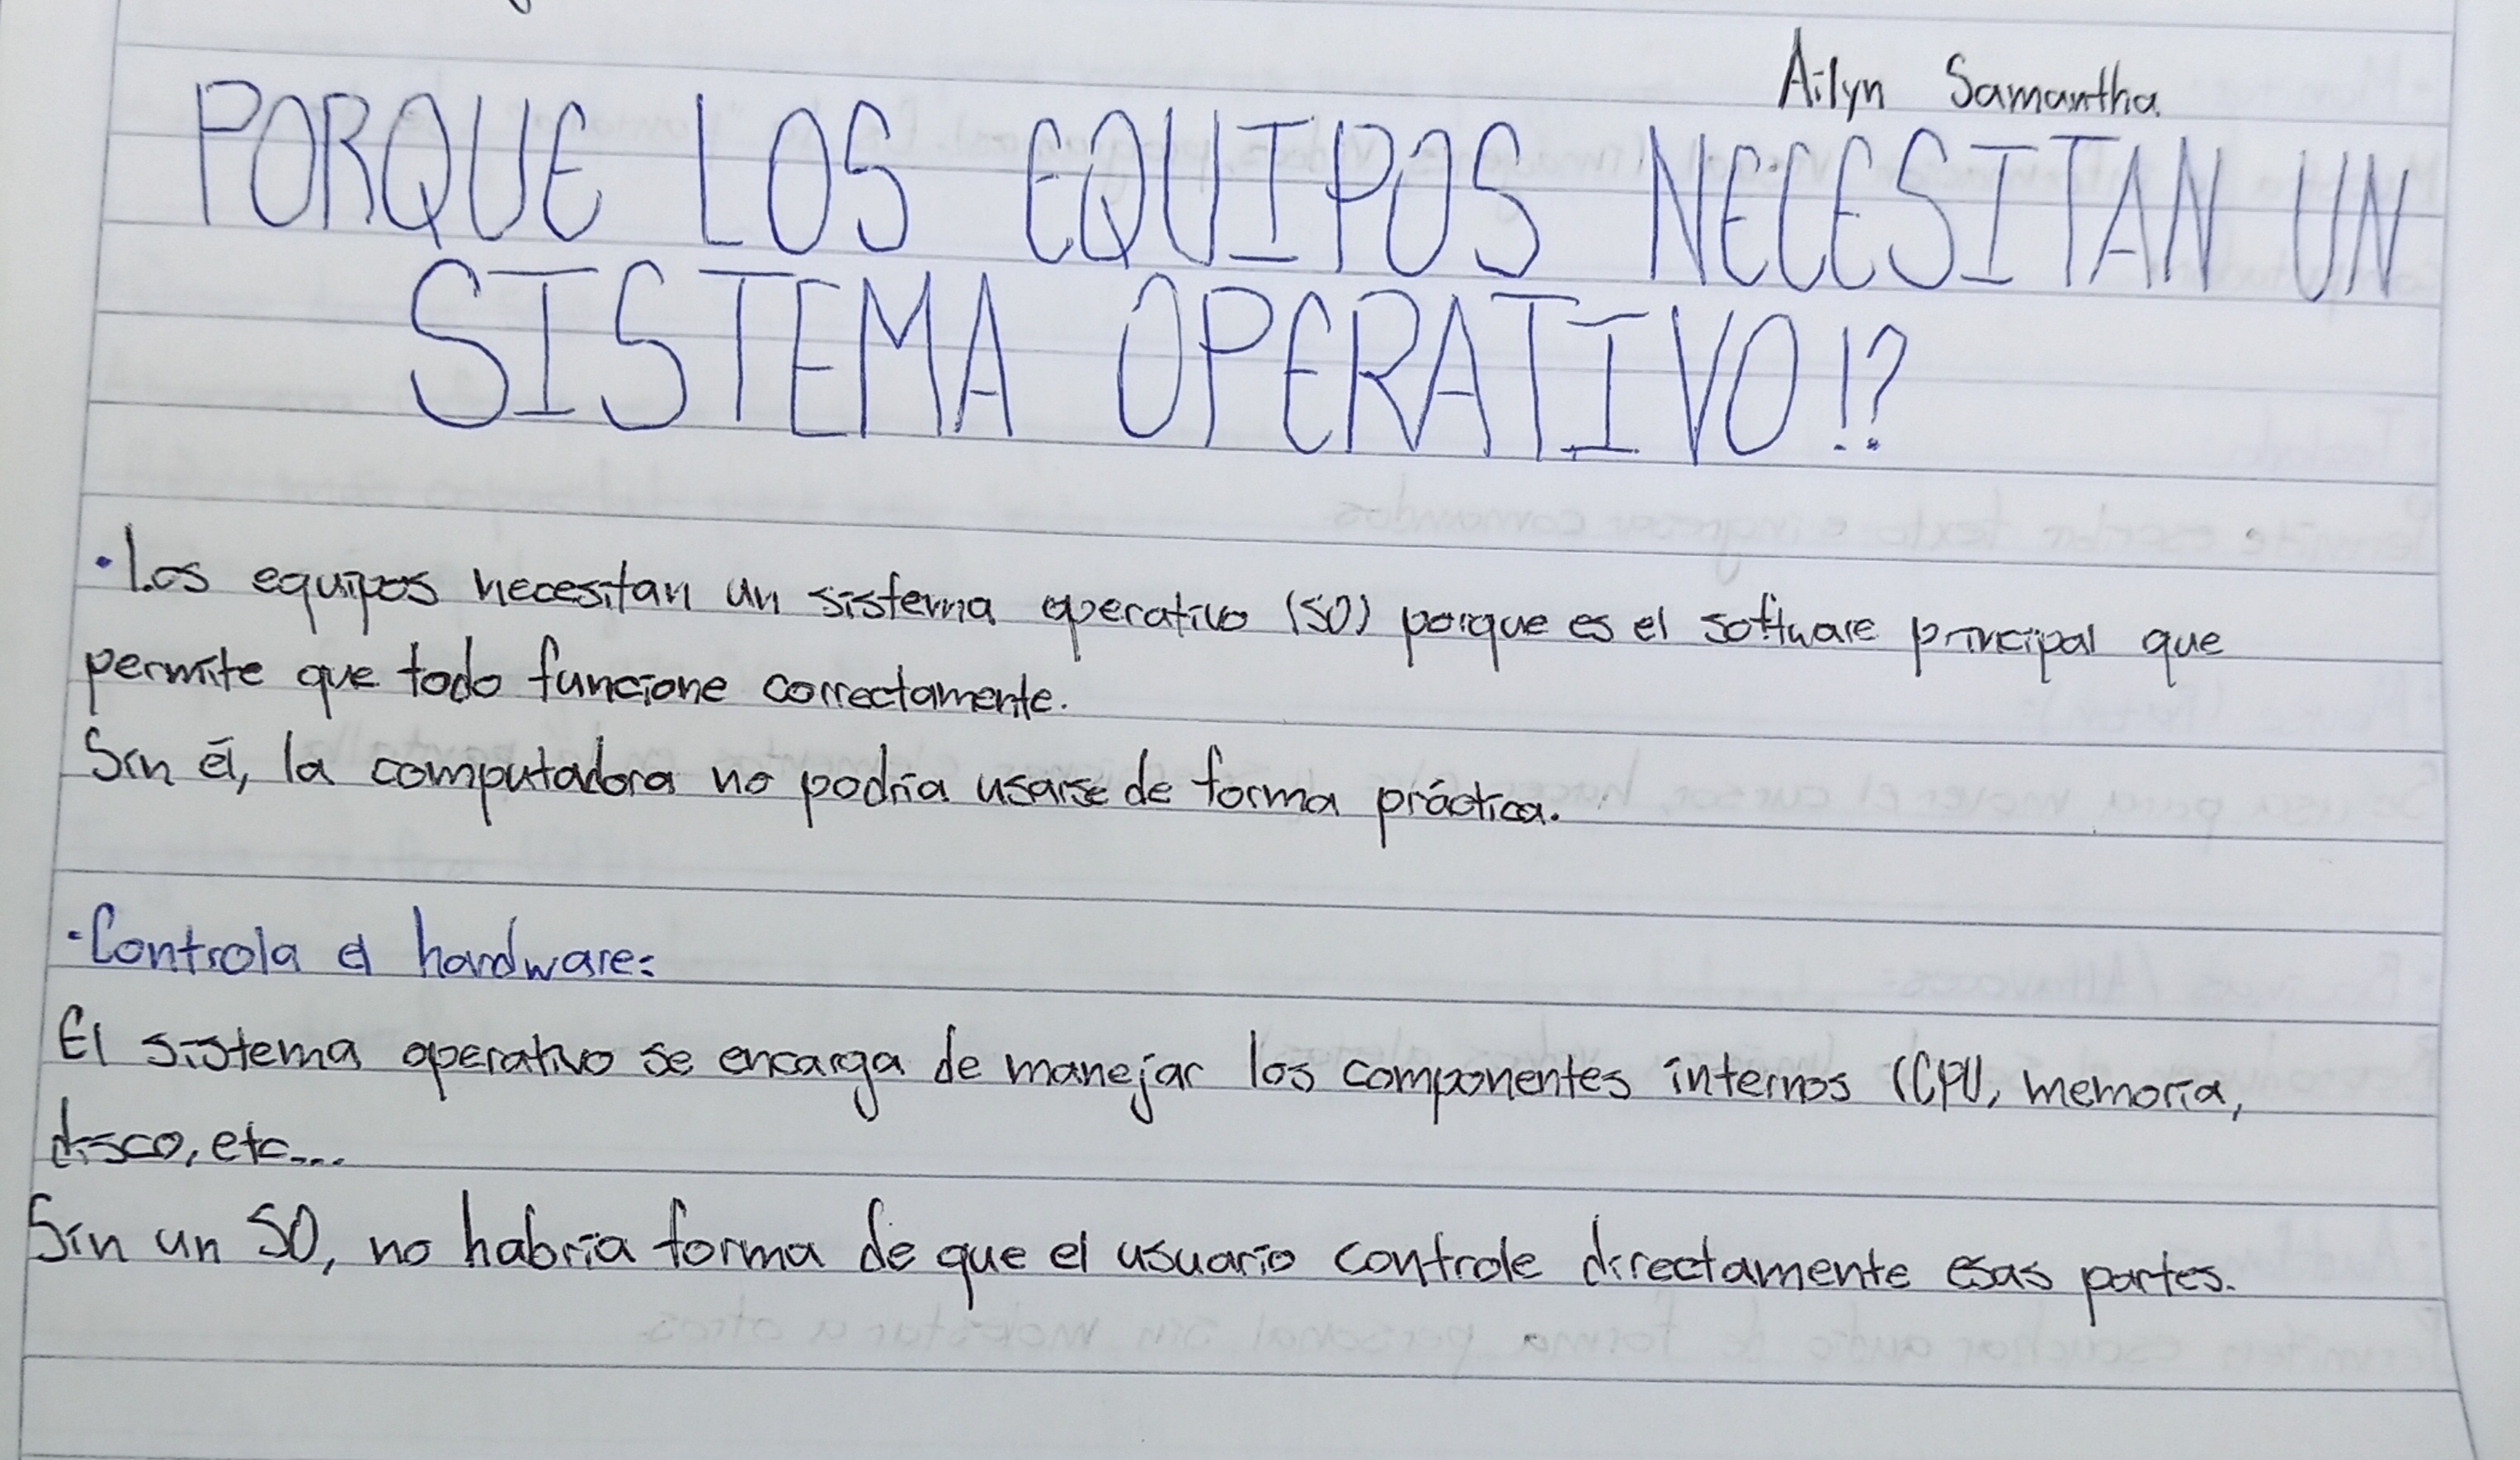 Ailyn Samantha
PORQUE LOS EQUIPOS NECESITAN UN
SISTEMA OPERATIVO!?
·Los equipos necesitan un sistema operativo (SO) porque es el software principal que
permite que todo funcione correctamente.
Sin él, la computadora no podría usarse de forma práctica.
·Controla el hardware:
El sistema operativo se encarga de manejar los componentes internos (CPU, memoria,
disco, etc...
Sin un SO, no habría forma de que el usuario controle directamente esas partes.